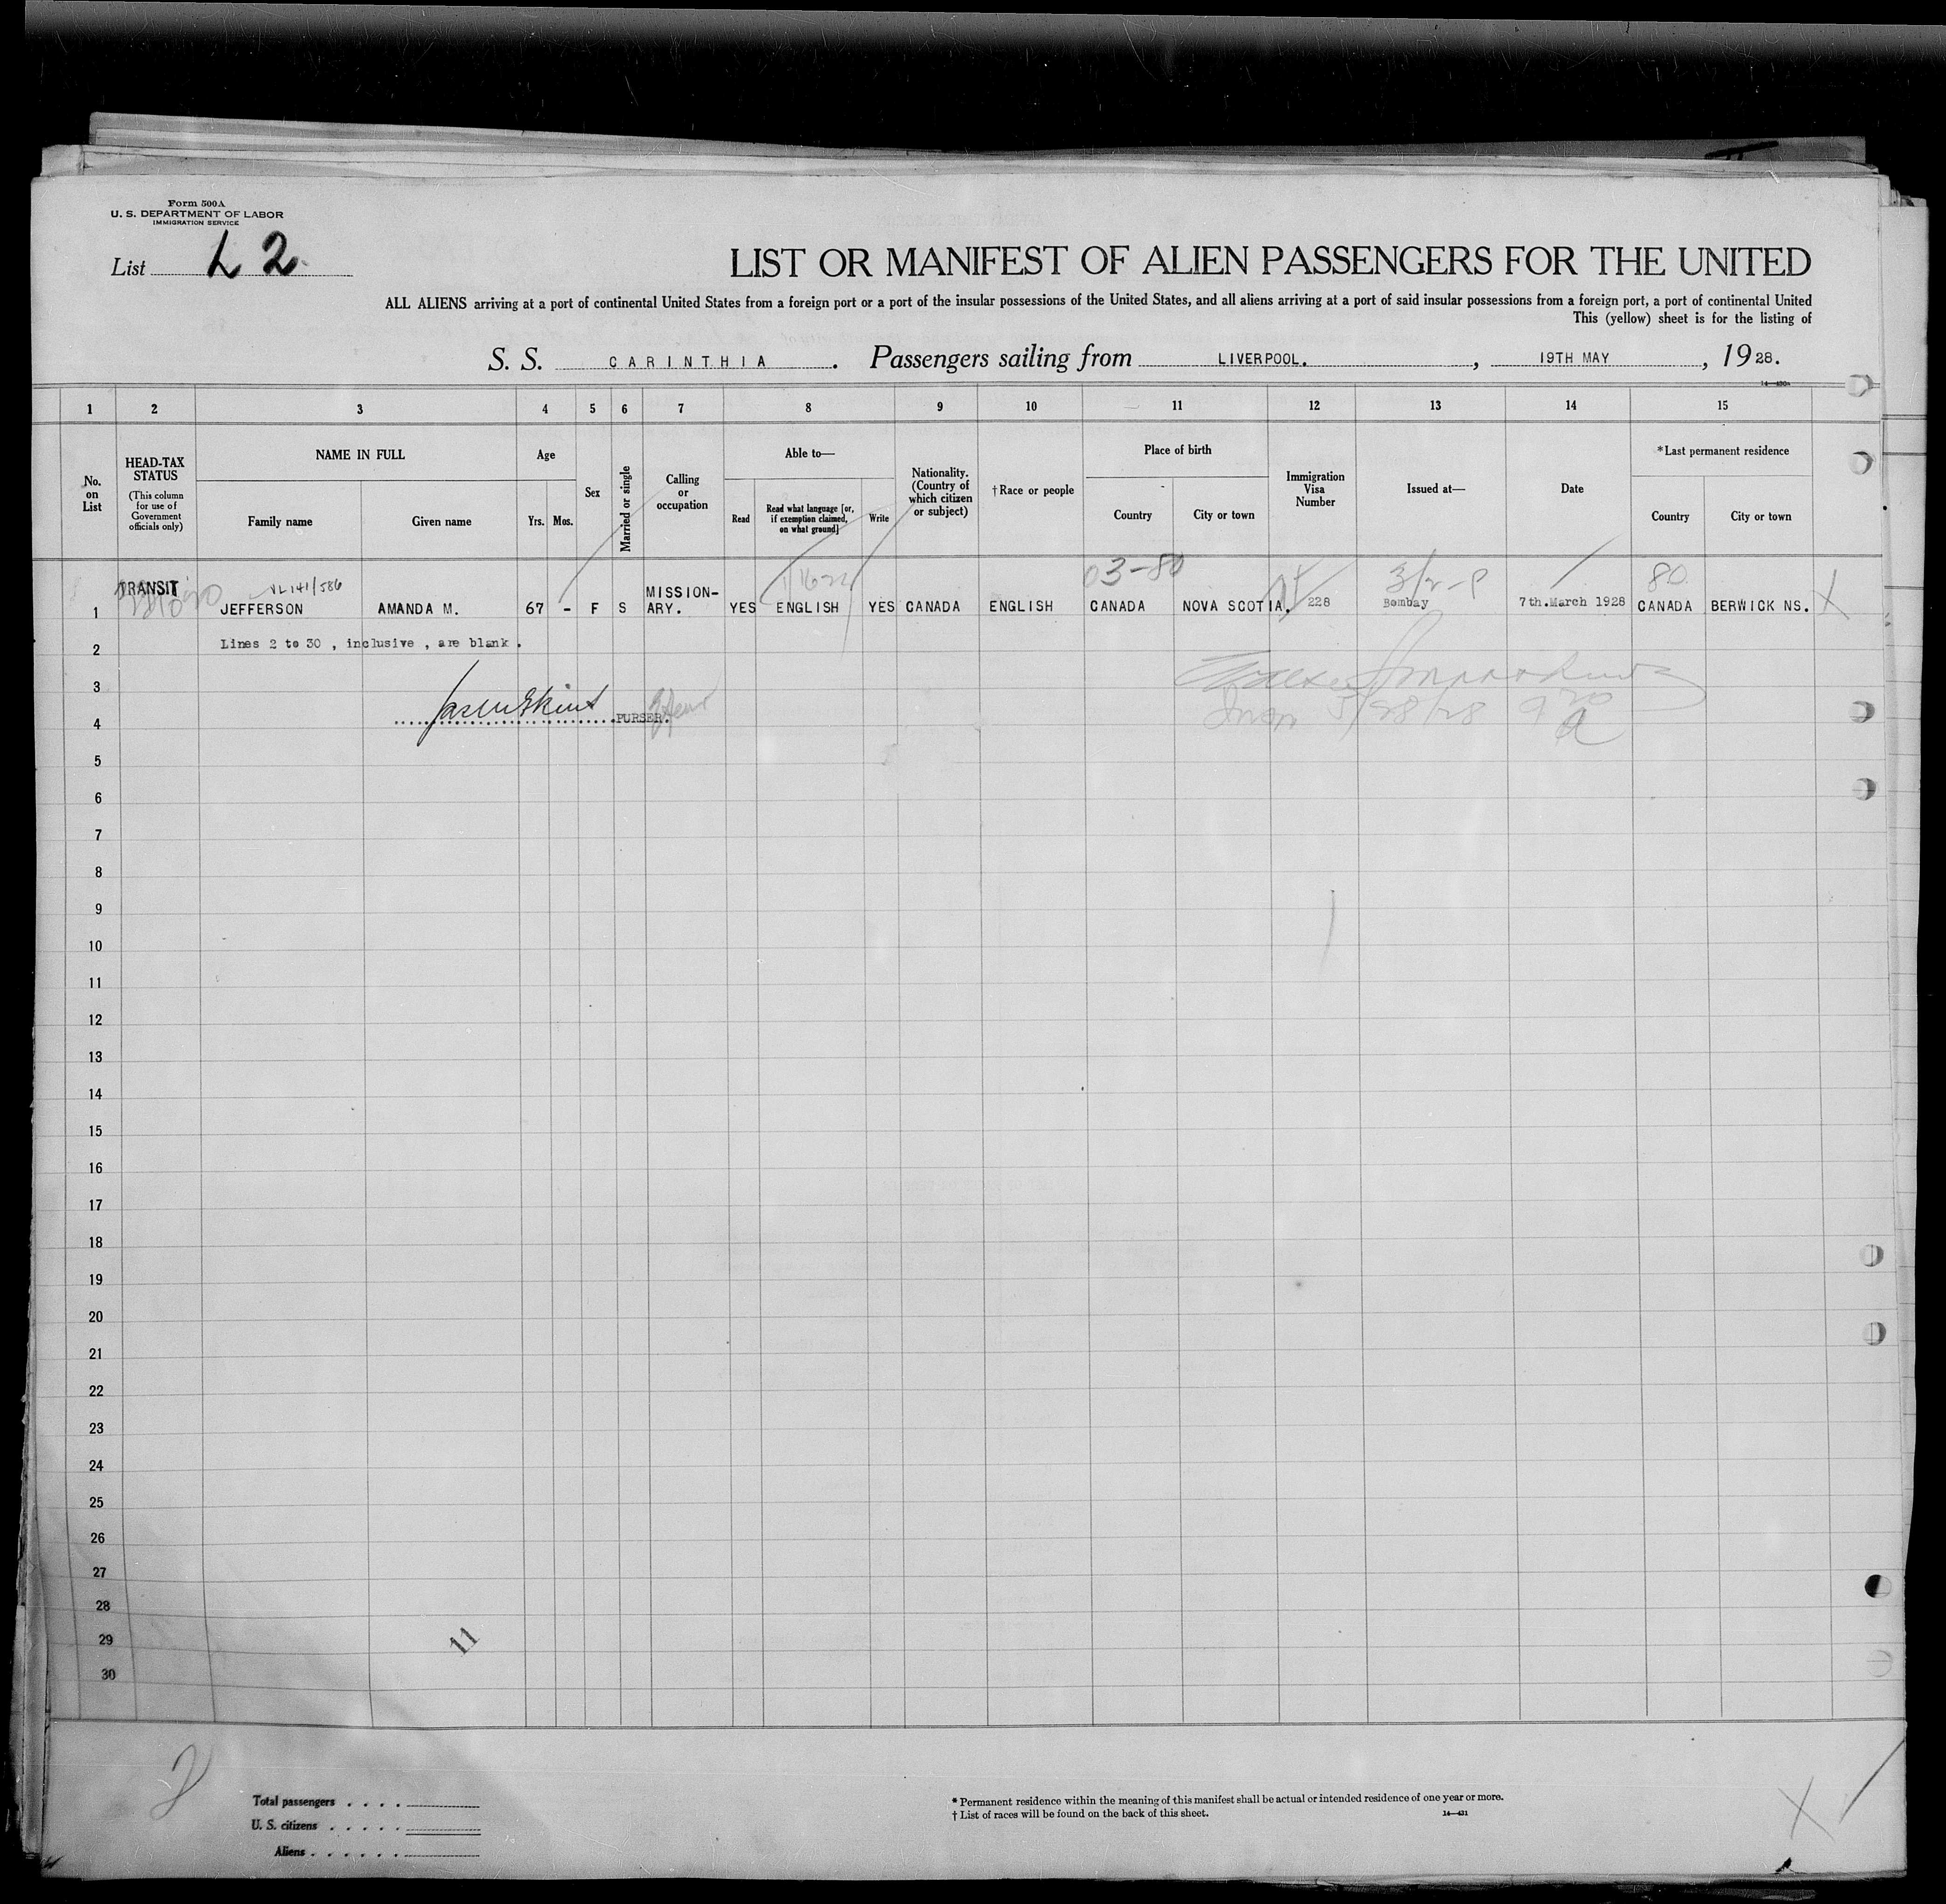 Form 500A
U. S. DEPARTMENT OF LABOR
IMMIGRATION SERVICE
List L 2
LIST OR MANIFEST OF ALIEN PASSENGERS FOR THE UNITED
ALL ALIENS arriving at a port of continental United States from a foreign port or a port of the insular possessions of the United States, and all aliens arriving at a port of said insular possessions from a foreign port, a port of continental United
This (yellow) sheet is for the listing of
S. S. CARINTHIA. Passengers sailing from LIVERPOOL., 19TH MAY, 1928.
1 2 3 4 5 6 7 8 9 10 11 12 13 14 15
No. on List
HEAD-TAX STATUS
(This column for use of Government officials only)
NAME IN FULL
Family name
Given name
Age
Yrs. Mos.
Sex
Married or single
Calling or occupation
Able to—
Read
Read what language [or, if exemption claimed, on what ground]
Write
Nationality. (Country of which citizen or subject)
†Race or people
Place of birth
Country
City or town
Immigration Visa Number
Issued at—
Date
*Last permanent residence
Country
City or town
03-80
3/2-P
80
TRANSIT
VL141/586
1 JEFFERSON AMANDA M. 67 - F S MISSION-ARY. YES ENGLISH YES CANADA ENGLISH CANADA NOVA SCOTIA. 228 Bombay 7th.March 1928 CANADA BERWICK NS. X
2 Lines 2 to 30 , inclusive , are blank .
3
4 PURSER.
5/28/28
5
6
7
8
9
10
11
12
13
14
15
16
17
18
19
20
21
22
23
24
25
26
27
28
29
11
30
2
Total passengers . . . .
U. S. citizens . . . . .
Aliens . . . . . .
* Permanent residence within the meaning of this manifest shall be actual or intended residence of one year or more.
† List of races will be found on the back of this sheet.
14—431
X